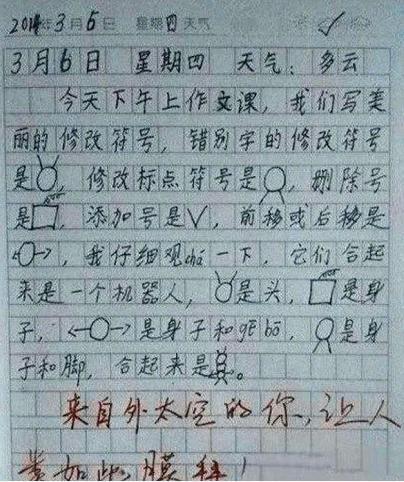 2014年3月5日 星期四 天气
3月6日 星期四 天气：多云
今天下午上作文课，我们写美
丽的修改符号，错别字的修改符号
是，修改标点符号是，删除号
是，添加号是√，前移或后移是
，我仔细观chá一下，它们合起
来是一个机器人，是头，是身
子，是身子和gē bō，是身
子和脚，合起来是。
来自外太空的你，让人
类如此膜拜！